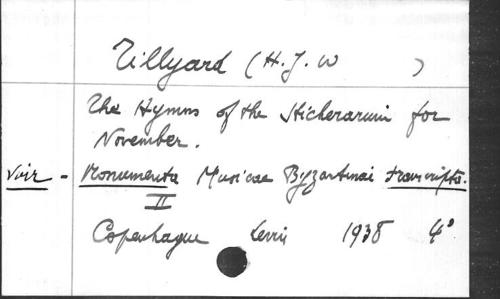 Tillyard (H.J.W )
The Hymns of the Sticherarium for
November.
Voir - Monumenta Musicae Byzantinai transcripta.
II
Copenhague Levin 1938 4°